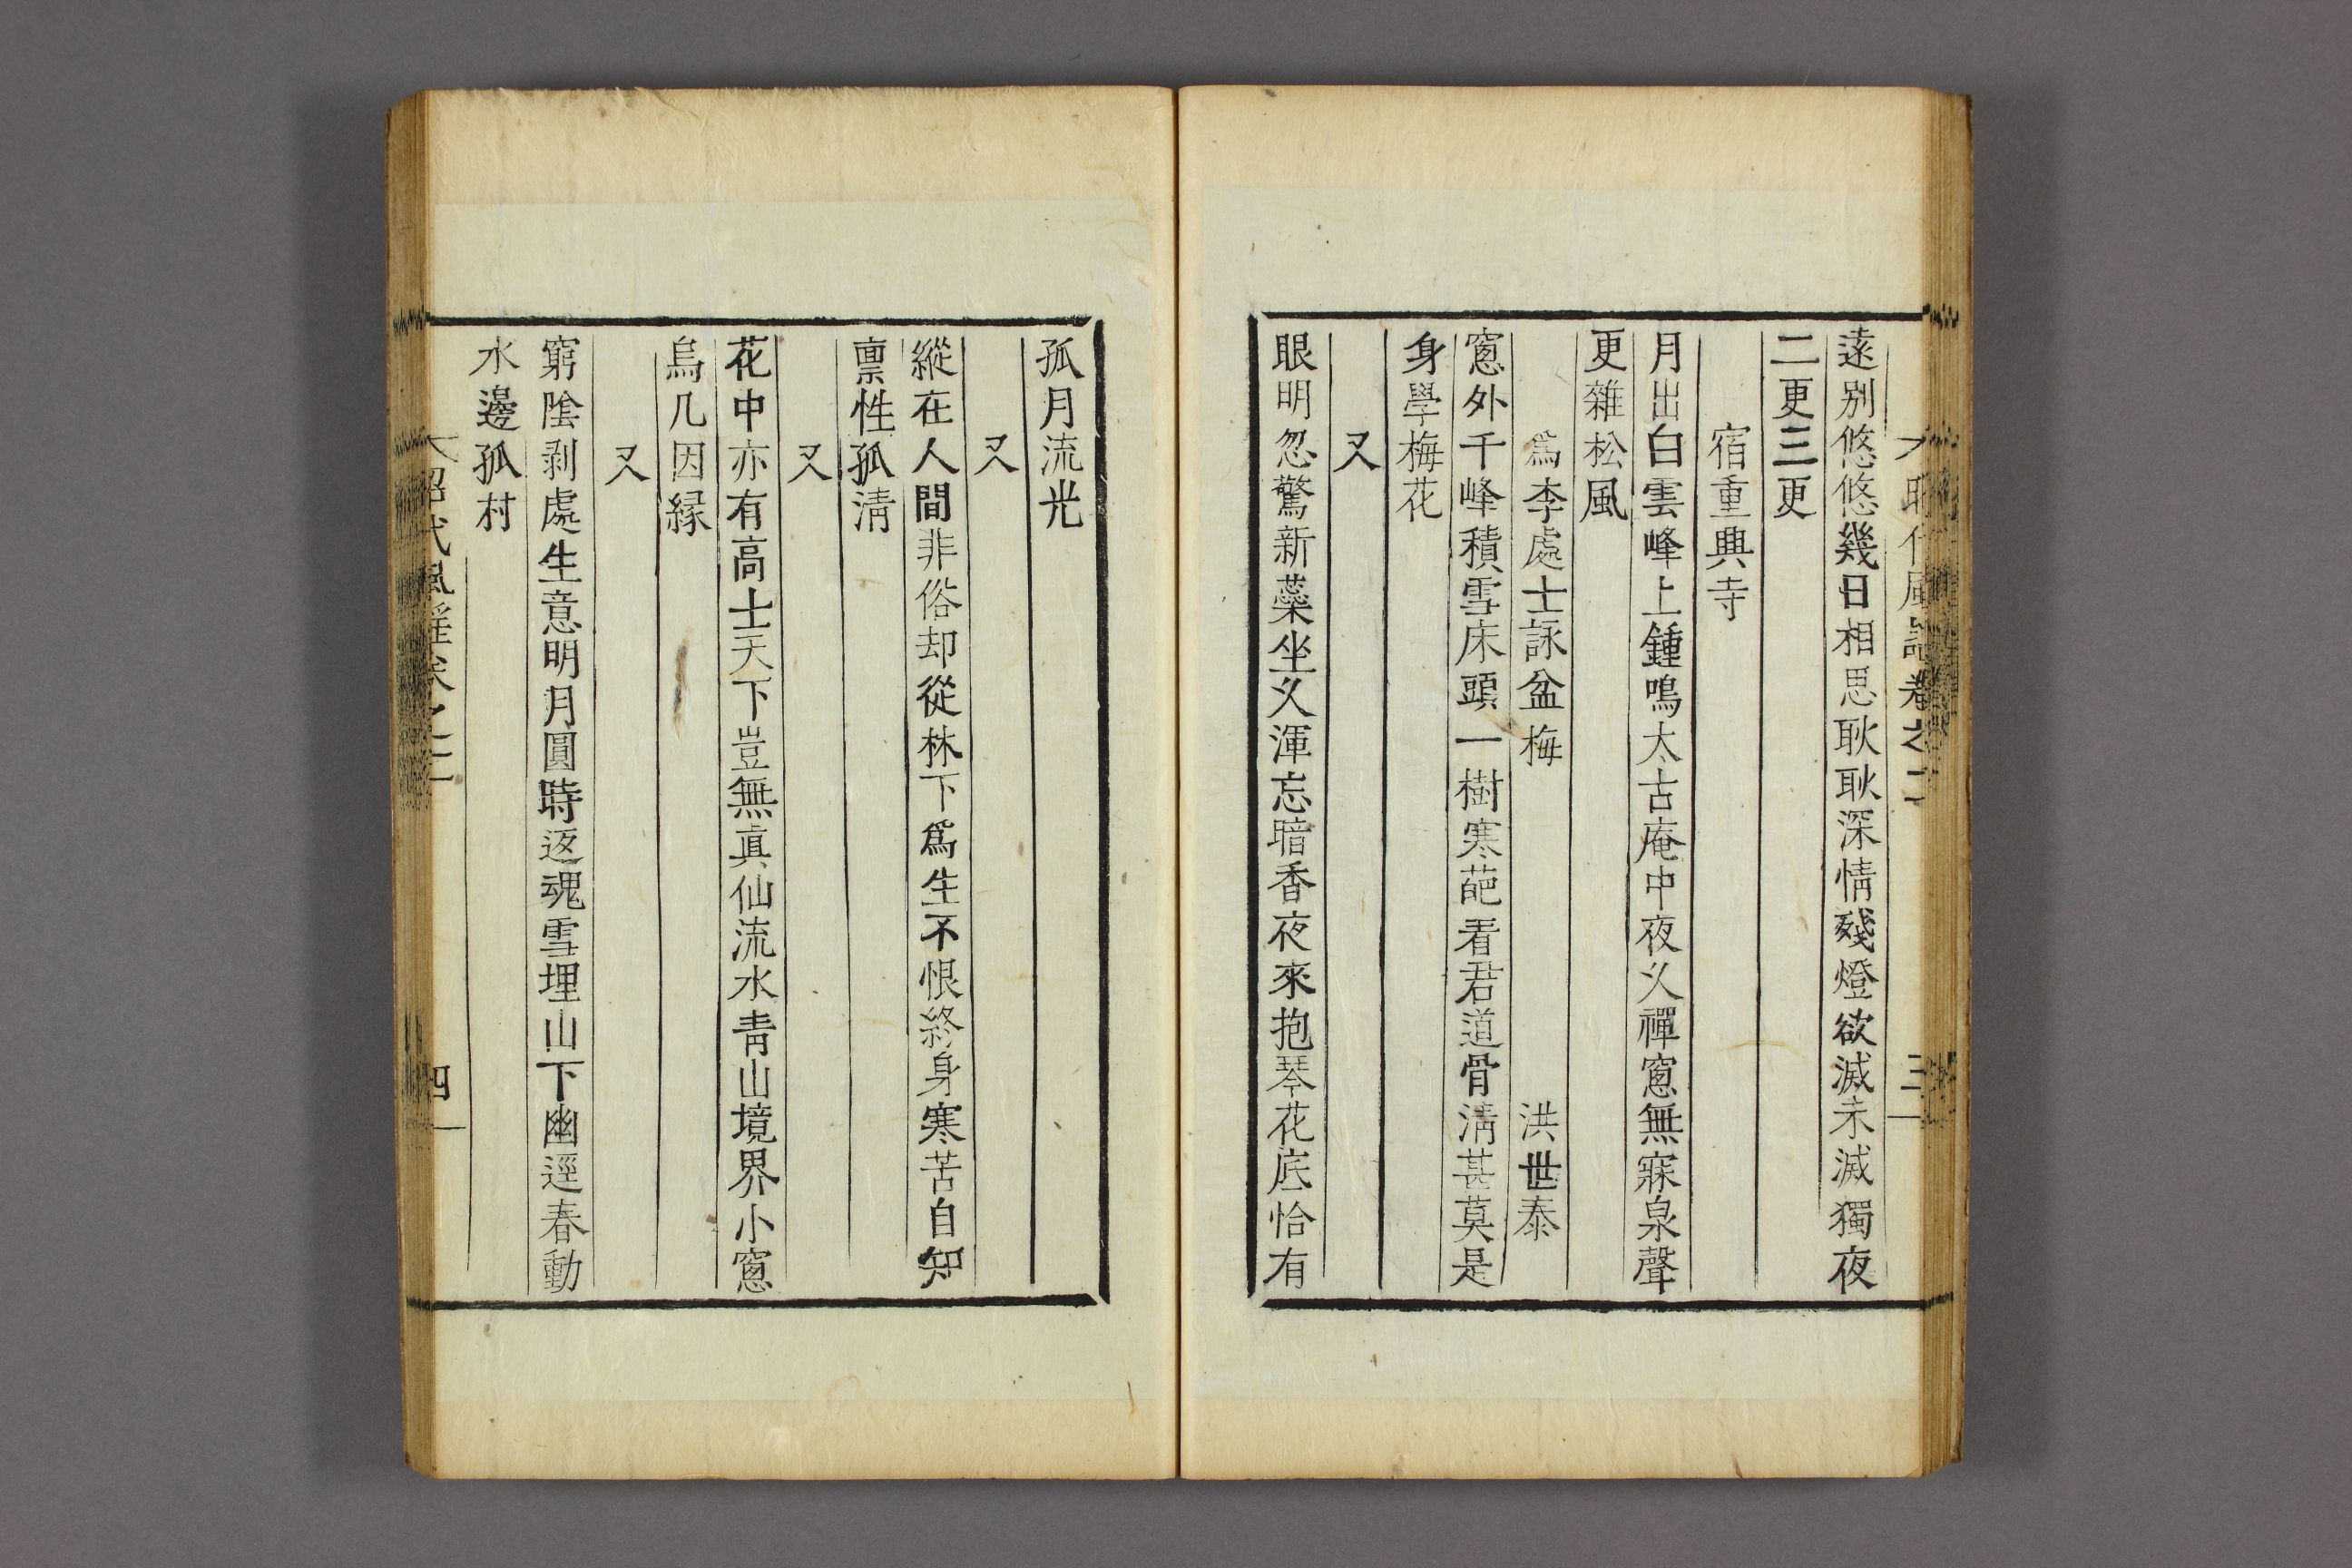 昭代風謠卷之二
三
遠別悠悠幾日相思耿耿深情殘燈欲滅未滅獨夜
二更三更
宿重興寺
月出白雲峰上鍾鳴太古庵中夜久禪窓無寐泉聲
更雜松風
爲李處士詠盆梅 洪世泰
窓外千峰積雪床頭一樹寒葩看君道骨淸甚莫是
身學梅花
又
眼明忽驚新蘂坐久渾忘暗香夜來抱琴花底恰有
孤月流光
又
縱在人間非俗却從林下爲生不恨終身寒苦自知
禀性孤淸
又
花中亦有高士天下豈無眞仙流水靑山境界小窓
烏几因縁
又
窮陰剥處生意明月圓時返魂雪埋山下幽逕春動
水邊孤村
昭代風謠卷之二
四